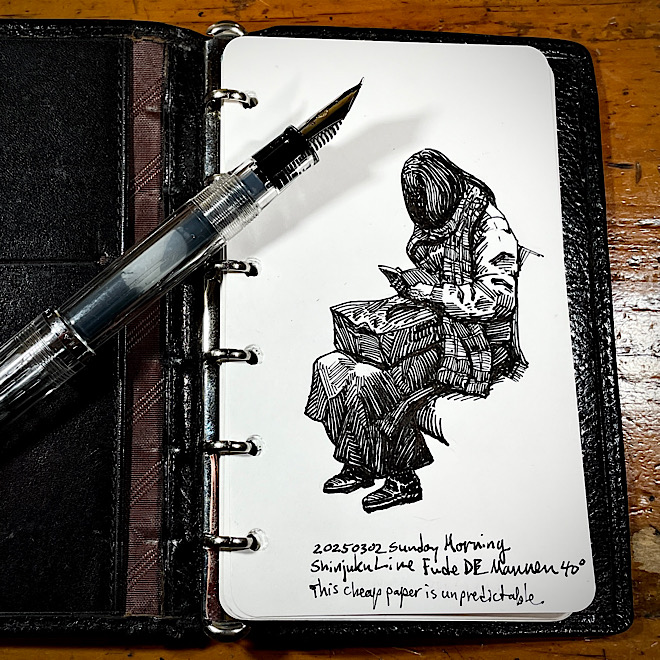 20250302 Sunday Morning
Shinjuku Line Fude DE Mannen 40°
This cheap paper is unpredictable.